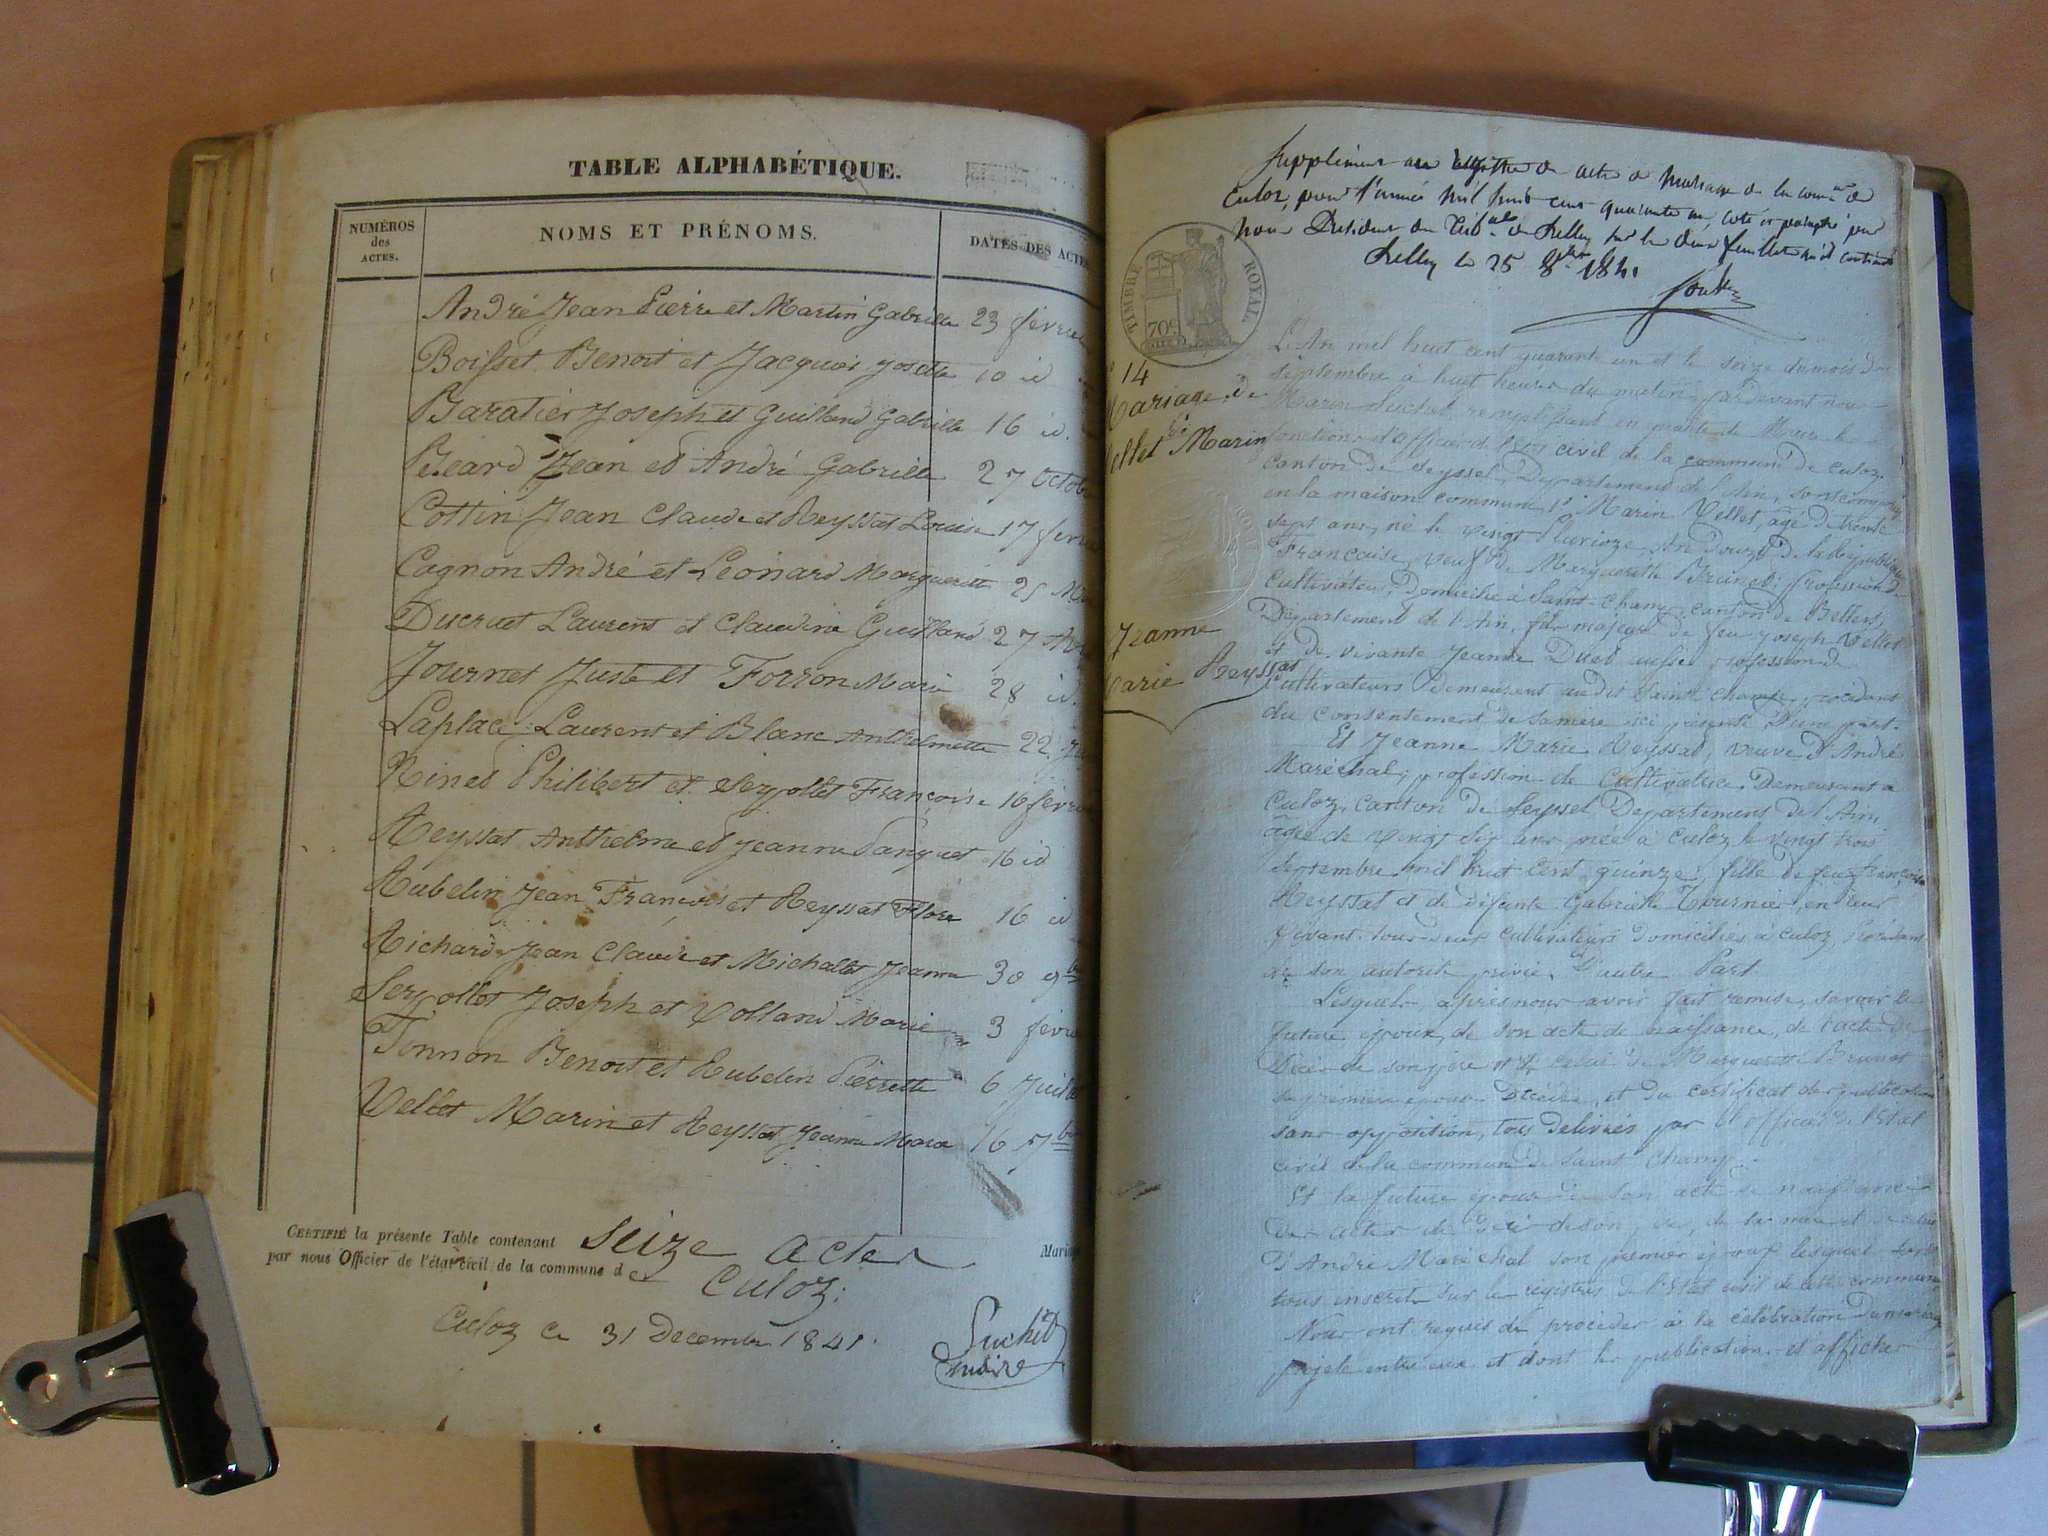 TABLE ALPHABÉTIQUE.
NUMÉROS
des
ACTES.
NOMS ET PRÉNOMS.
DATES DES ACTES
André Jean Pierre et Martin Gabrielle 23 février
Boisset Benoit et Jacquoi Josette 10 id
Baratier Joseph et Guilland Gabrielle 16 id.
Béard Jean et André Gabrielle 27 octob
Cottin Jean Claude et Reyssat Louise 17 fevr
Cognon André et Léonard Marguerite 25 Ma
Ducruet Laurent et Claudine Guilland 27 Av
Journet Juste et Forron Marie 28 id.
Laplace Laurent et Blanc Anthelmette 22 Ju
Rined Philibert et Serpollet Françoise 16 fevri
Reyssat Anthelme et Jeanne Panquet 16 id
Rubelin Jean François et Reyssat Flore 16 id
Richard Jean Claude et Michallet Jeanne 30 9bre
Serpollet Joseph et Volland Marie 3 févri
Tonnon Benoit et Rubelin Pierrette 6 Juillet
Vellet Marin et Reyssat Jeanne Marie 16 7bre
CERTIFIÉ la présente Table contenant Seize actes Maria
par nous Officier de l'état civil de la commune de Culoz.
Culoz Ce 31 Decembre 1841.
Suchet
maire
Supplément au registre de actes de mariage de la comne de
Culoz, pour l'année mil huit cent quarante un, coté et paraphé par
nous Président du Tribal de Belley sur les deux feuillets qu'il contient
Belley le 25 8bre 1841
TIMBRE ROYAL
709
14
Mariage de
Vellet Marin
et
Jeanne
Marie Reyssat
L'An mil huit cent quarante un et le seize du mois de
septembre à huit heures du matin, par devant nous
Marin Suchet remplissant en qualité de Maire les
fonctions d'officier de l'état civil de la commune de Culoz
canton de Seyssel, Département de l'Ain, sont comparus
en la maison commune, Marin Vellet, âgé de trente
sept ans, né le vingt Pluvioze An Douze de la République
Française, veuf de Marguerite Brunet, profession de
cultivateur, domicilié à Saint-Champ, canton de Belley,
Département de l'Ain, fils majeur de feu Joseph Vellet
et de vivante Jeanne Duet aussi profession de
cultivateurs demeurant audit Saint Champ, procédant
du consentement de sa mère ici présente D'une part.
Et Jeanne Marie Reyssat, veuve d'André
Maréchal, profession de Cultivatrice, Demeurant a
Culoz, Canton de Seyssel Departement de l'Ain,
âgée de vingt six ans née à Culoz le vingt trois
septembre mil huit cent quinze, fille de feu François
Reyssat et de défunte Gabrielle Tournier, en leur
vivant tous deux cultivateurs domiciliés à Culoz, procédant
de son autorité privée, d'autre Part
Lesquels, après nous avoir fait remise, savoir le
futur époux, de son acte de naissance, de l'acte de
Décès de son père et de celui de Marguerite Brunet
sa premiere epouse Décédée, et du certificat de publication
sans opposition, tous délivrés par l'officier de l'Etat
civil de la commune de Saint Champ.
Et la future épouse de son acte de naissance
des actes de décès de son père, de sa mère et de celui
d'André Maréchal son premier époux lesquels sont
tous inscrits sur les registres de l'Etat civil de cette commune
Nous ont requis de procéder à la célébration du mariage
projeté entre eux et dont les publications et affiches